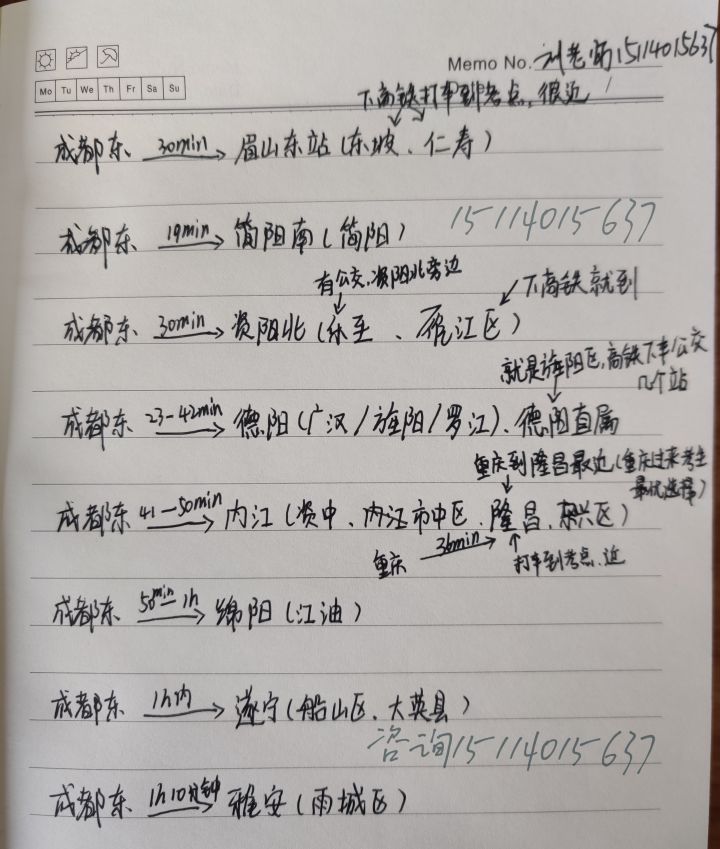 Memo No. 刘老师15114015637
Mo Tu We Th Fr Sa Su
下高铁打车到考点,很近
成都东 30min→ 眉山东站(东坡、仁寿)
成都东 19min→ 简阳南(简阳) 15114015637
有公交,资阳北旁边
下高铁就到
成都东 30min→ 资阳北(乐至、雁江区)
就是旌阳区,高铁下车/公交
几个站
成都东 23-42min→ 德阳(广汉/旌阳/罗江)、德阳直属
重庆到隆昌最近(重庆过来考生
最优选择)
成都东 41-50min→ 内江(资中、内江市中区、隆昌、东兴区)
重庆 36min→
打车到考点、近
成都东 50min-1h→ 绵阳(江油)
成都东 1h内→ 遂宁(船山区、大英县)
咨询15114015637
成都东 1h10分钟→ 雅安(雨城区)